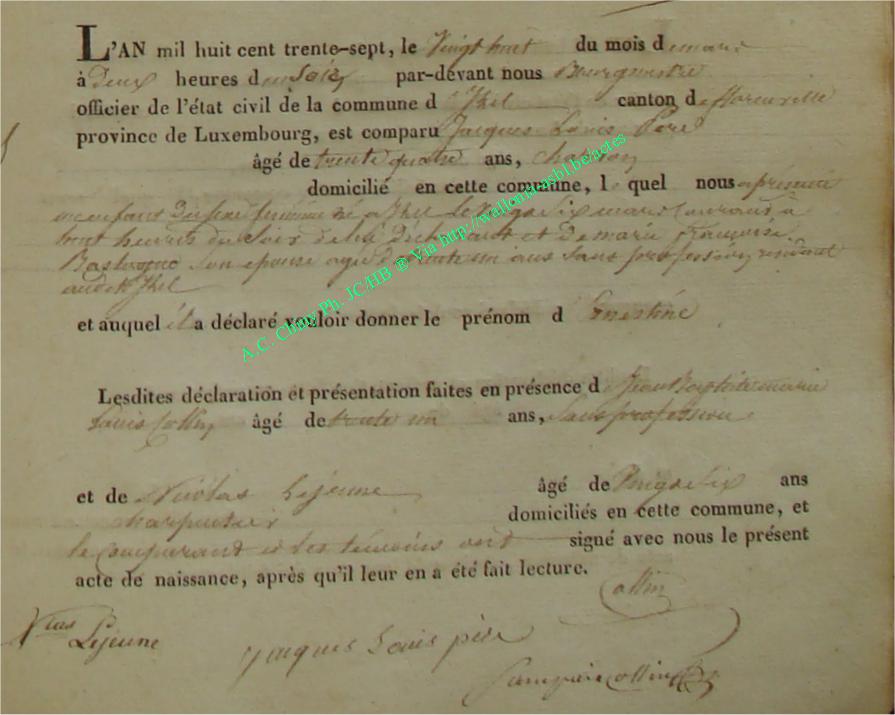 L'AN mil huit cent trente-sept, le Vingt huit du mois de mars
à Deux heures du Soir par-devant nous Bourgmestre
officier de l'état civil de la commune d'Thel canton de florenville
province de Luxembourg, est comparu Jacques Louis Pere
âgé de trente quatre ans, charron
domicilié en cette commune, le quel nous a présenté
un enfant du sexe féminin né à Thel le Vingt Six mars Courant, à
huit heures du Soir de lui Déclarant et De marie françoise
Bastogne Son épouse agée De trente un ans Sans profession, résidant
audit Thel
et auquel il a déclaré vouloir donner le prénom d'Ernestine
Lesdites déclaration et présentation faites en présence de Jean Baptiste marie
Louis Collin âgé de trente un ans, Sans profession
et de Nicolas Lejeune âgé de Vingt Six ans
charpentier domiciliés en cette commune, et
le Comparant et les témoins ont signé avec nous le présent
acte de naissance, après qu'il leur en a été fait lecture.
Collin
Nlas Lejeune
Jacques Louis père
A.C. Chiny Ph. JC/HB ® Via http://wallonia-asbl.be/actes